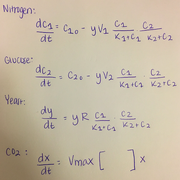 Nitrogen:
dC₁/dt = C₁₀ - yV₁ C₁/(K₁+C₁) · C₂/(K₂+C₂)
Glucose:
dC₂/dt = C₂₀ - yV₁ C₁/(K₁+C₁) · C₂/(K₂+C₂)
Yeast:
dy/dt = yR C₁/(K₁+C₁) · C₂/(K₂+C₂)
CO₂:
dx/dt = Vmax [ ] x